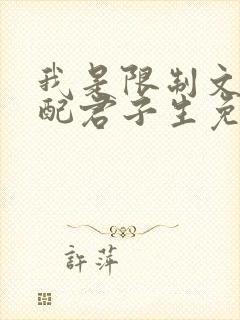 我是限制文
配君子生免
許萍